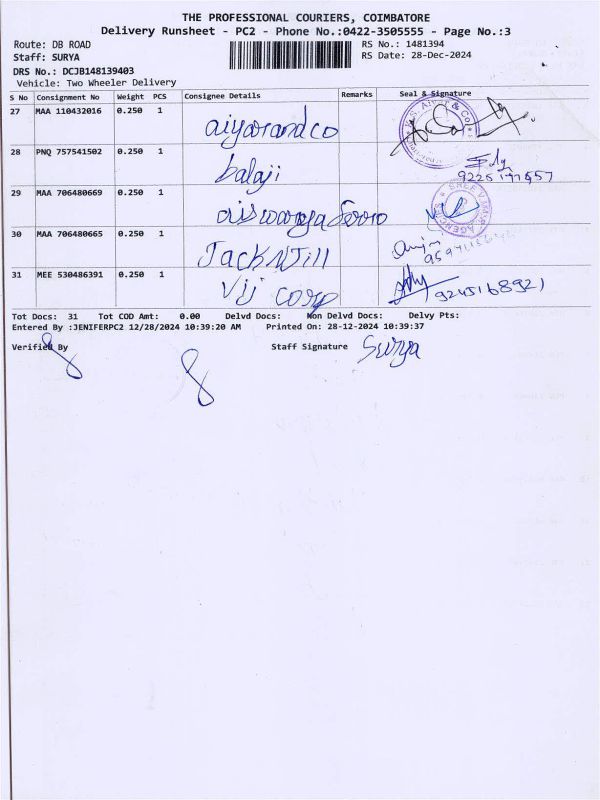 THE PROFESSIONAL COURIERS, COIMBATORE
Delivery Runsheet - PC2 - Phone No.:0422-3505555 - Page No.:3
Route: DB ROAD RS No.: 1481394
Staff: SURYA RS Date: 28-Dec-2024
DRS No.: DCJB148139403
Vehicle: Two Wheeler Delivery
S No Consignment No Weight PCS Consignee Details Remarks Seal & Signature
27 MAA 110432016 0.250 1 aiyarandco
28 PNQ 757541502 0.250 1 balaji
29 MAA 706480669 0.250 1 aiswarya
30 MAA 706480665 0.250 1 Jack N Jill
31 MEE 530486391 0.250 1 Vij corp 9245168921
Tot Docs: 31 Tot COD Amt: 0.00 Delvd Docs: Non Delvd Docs: Delvy Pts:
Entered By :JENIFERPC2 12/28/2024 10:39:20 AM Printed On: 28-12-2024 10:39:37
Verified By Staff Signature Surya